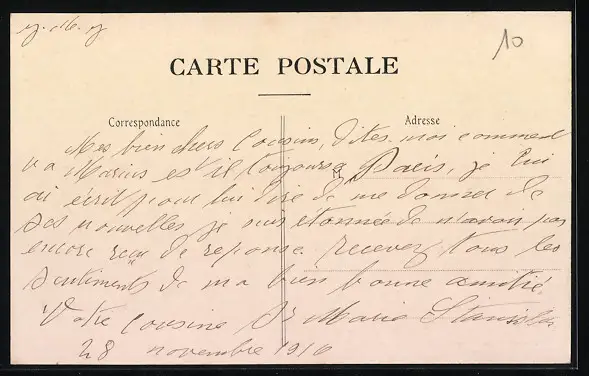 CARTE POSTALE
10
Correspondance
Adresse
Mes bien chers Cousins, Dites moi comment
va Marius est il toujours a Paris, je lui
ai écrit pour lui dire de me donner de
ses nouvelles, je suis étonnée de n'avoir pas
encore reçu de reponse. recevez tous les
sentiments de ma bien bonne amitié.
Votre Cousine Sr Marie Stanislas
28 novembre 1916